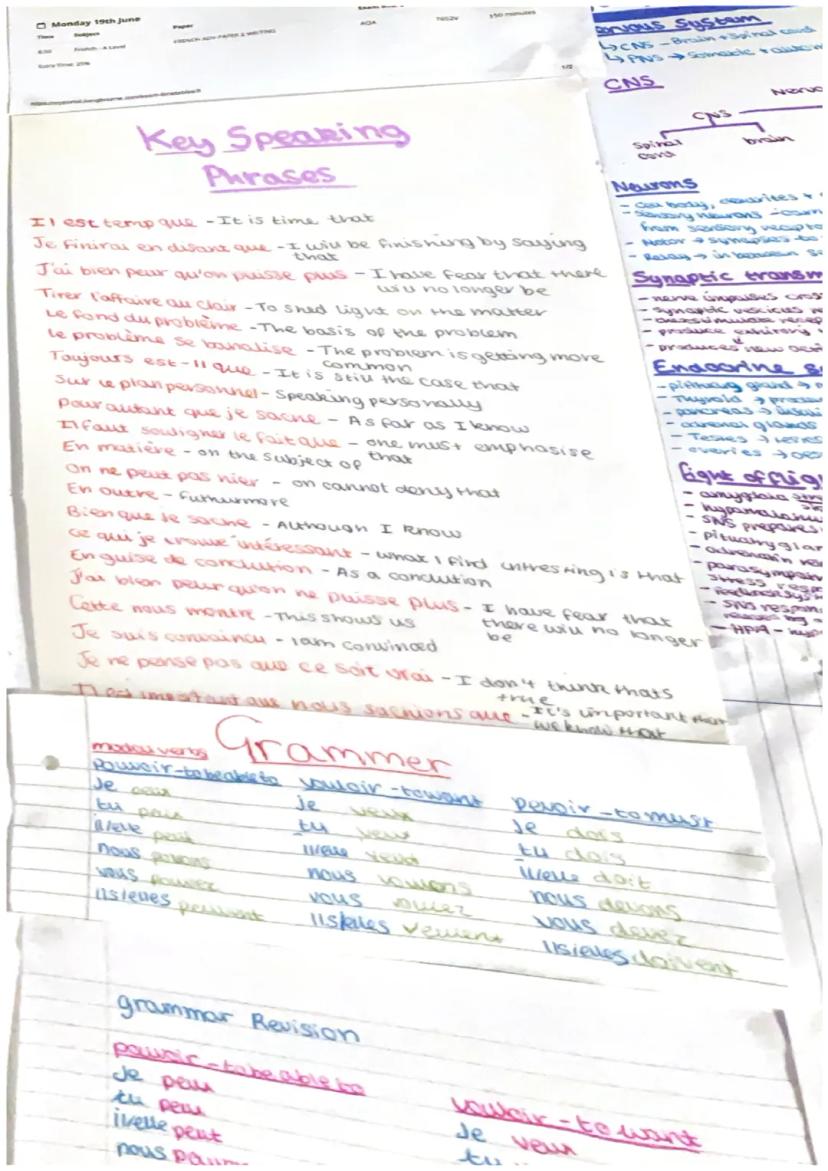 Monday 19th June
Time Subject Paper
AQA 7652W 150 minutes
6:30 French - A Level FRENCH ADV PAPER 2 WRITING
Extra Time: 25%
1/2
Key Speaking
Phrases
Il est temp que - It is time that
Je finirai en disant que - I will be finishing by saying
that
J'ai bien peur qu'on puisse plus - I have fear that there
will no longer be
Tirer l'affaire au clair - To shed light on the matter
Le fond du problème - The basis of the problem
le problème se banalise - The problem is getting more
common
Toujours est-il que - It is still the case that
Sur le plan personnel - Speaking personally
pour autant que je sache - As far as I know
Il faut souligner le fait que - one must emphasise
that
En matière - on the subject of
On ne peut pas nier - on cannot deny that
En outre - Futhurmore
Bien que je sache - Although I know
ce qui je trouve intéressant - what I find intresting is that
En guise de conclution - As a conclution
J'ai bien peur qu'on ne puisse plus - I have fear that
there will no longer
be
Cette nous montre - This shows us
Je suis convaincu - I am convinced
Je ne pense pas que ce soit vrai - I don't think thats
true
Il est important que nous sachions que - It's important that
we know that
Grammer
modal verbs
pouvoir - to be able to vouloir - to want devoir - to must
Je peux Je veux Je dois
tu peux tu veux tu dois
il/elle peut il/elle veut il/elle doit
nous pouvons nous voulons nous devons
vous pouvez vous voulez vous devez
ils/elles peuvent ils/elles veulent ils/elles doivent
grammar Revision
pouvoir - to be able to vouloir - to want
Je peux Je veux
tu peux tu
il/elle peut
nous
System
↳ CNS - Brain + Spinal cord
↳ PNS → Somatic +
CNS
CNS
Spinal
cord
brain
Neurons
- Cell body, dendrites +
- Sensory Neurons
from sensory
- Motor → synapses to
- Relay → in between
Synaptic
- nerve impulses
- synaptic vesicles
- produce
- produces new
Endocrine
- pituitary gland →
- Thyroid →
- pancreas →
- adrenal glands
- Testes →
- overies →
fight of
- amygdala
- SNS prepares
- pituitary
- adrenalin
- stress
- SNS
- HPA -